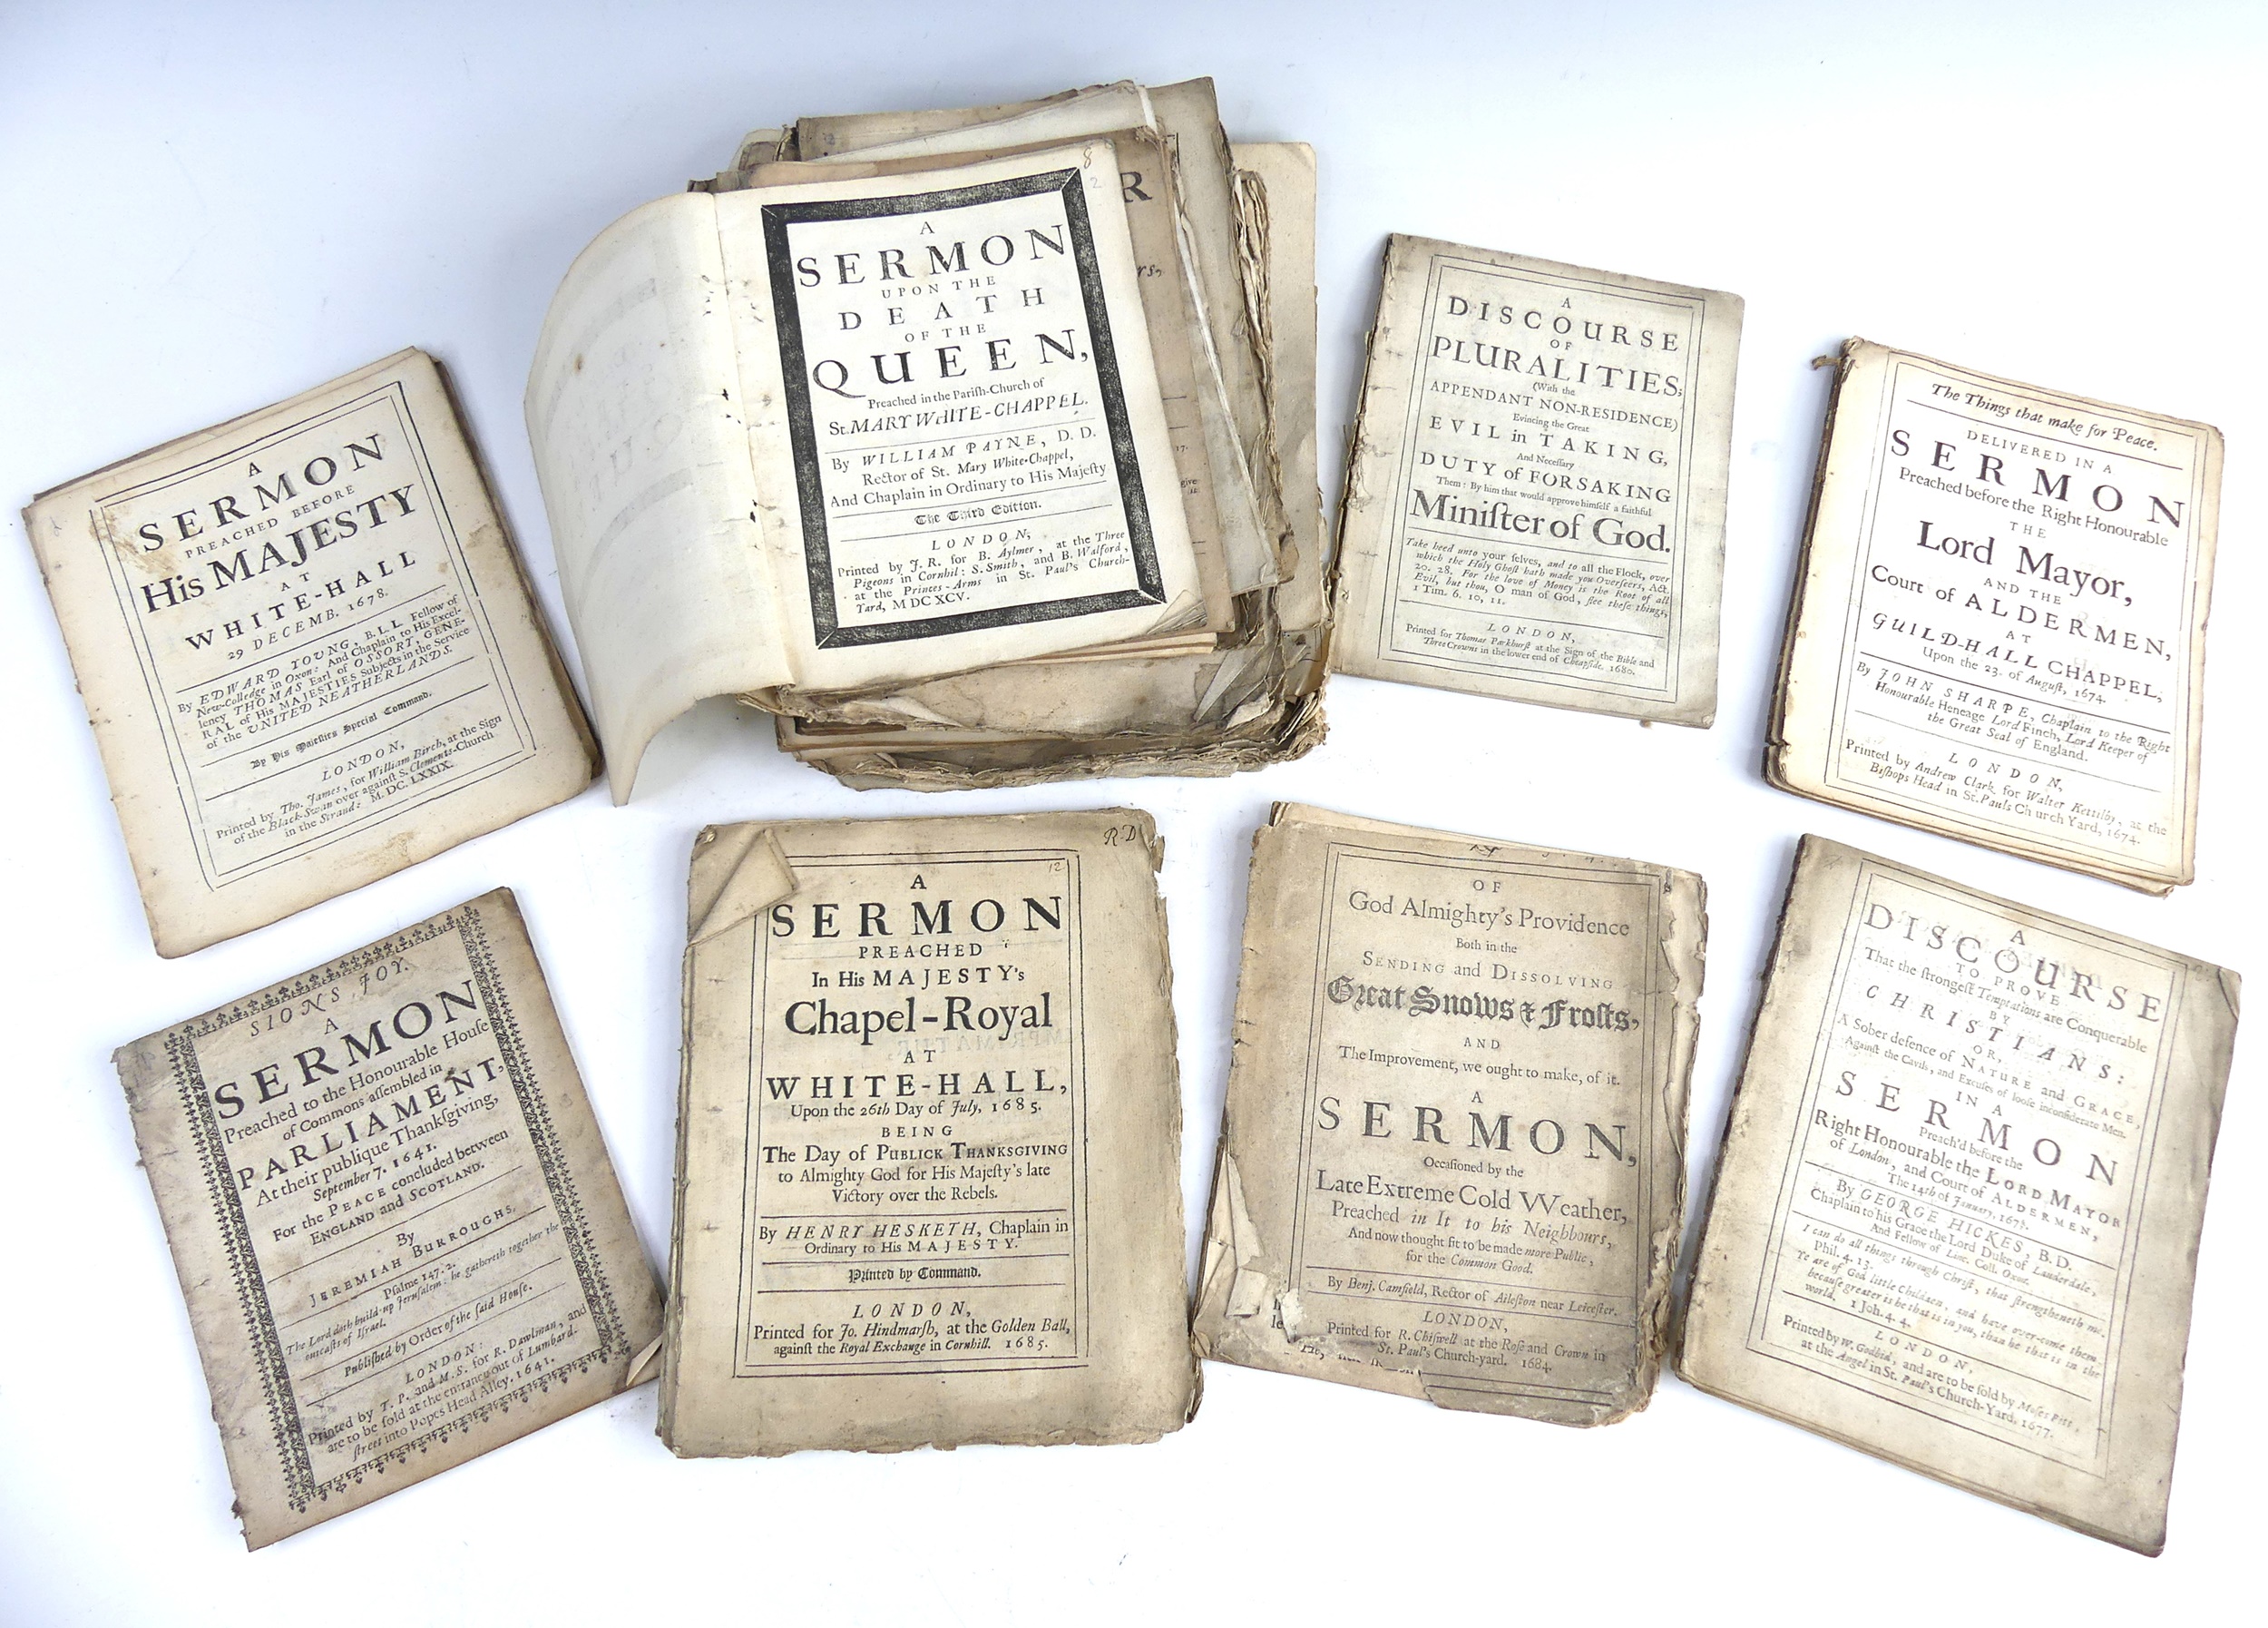 A
SERMON
PREACHED BEFORE
His MAJESTY
AT
WHITE-HALL
29 DECEMB. 1678.
By EDWARD YOUNG, B.LL. Fellow of
New-Colledge in Oxon: And Chaplain to His Excel-
lency THOMAS Earl of OSSORY, GENE-
RAL of His MAJESTIES Subjects in the Service
of the UNITED NEATHERLANDS.
By His Majesties Special Command.
LONDON,
Printed by Tho. James, for William Birch, at the Sign
of the Black-Swan over against S. Clements-Church
in the Strand: M. DC. LXXIX.
8
2
A
SERMON
UPON THE
DEATH
OF THE
QUEEN,
Preached in the Pariſh-Church of
St. MARY WHITE-CHAPPEL.
By WILLIAM PAYNE, D. D.
Rector of St. Mary White-Chappel,
And Chaplain in Ordinary to His Majeſty
The Third Edition.
LONDON,
Printed by J. R. for B. Aylmer, at the Three
Pigeons in Cornhil: S. Smith, and B. Walford,
at the Princes-Arms in St. Paul's Church-
Yard, MDCXCV.
R
rs,
17.
A
DISCOURSE
OF
PLURALITIES;
(With the
APPENDANT NON-RESIDENCE)
Evincing the Great
EVIL in TAKING,
And Neceſſary
DUTY of FORSAKING
Them: By him that would approve himſelf a faithful
Miniſter of God.
Take heed unto your ſelves, and to all the Flock, over
which the Holy Ghoſt hath made you Overſeers, Act.
20. 28. For the love of Money is the Root of all
Evil, but thou, O man of God, flee theſe things,
1 Tim. 6. 10, 11.
LONDON,
Printed for Thomas Parkhurſt at the Sign of the Bible and
Three Crowns in the lower end of Cheapſide. 1680.
The Things that make for Peace.
DELIVERED IN A
SERMON
Preached before the Right Honourable
THE
Lord Mayor,
AND THE
Court of ALDERMEN,
AT
GUILD-HALL CHAPPEL,
Upon the 23. of Auguſt, 1674.
By JOHN SHARPE, Chaplain to the Right
Honourable Heneage Lord Finch, Lord Keeper of
the Great Seal of England.
LONDON,
Printed by Andrew Clark, for Walter Kettilby, at the
Biſhops Head in St. Pauls Church Yard, 1674.
SIONS JOY.
A
SERMON
Preached to the Honourable Houſe
of Commons aſſembled in
PARLIAMENT,
At their publique Thankſgiving,
September 7. 1641.
For the PEACE concluded between
ENGLAND and SCOTLAND.
By
JEREMIAH BURROUGHS.
Pſalme 147. 2.
The Lord doth build up Jeruſalem: he gathereth together the
outcaſts of Iſrael.
Publiſhed by Order of the ſaid Houſe.
LONDON:
Printed by T. P. and M. S. for R. Dawlman, and
are to be ſold at the entrance out of Lumbard-
ſtreet into Popes Head Alley. 1641.
R:D
12
A
SERMON
PREACHED
In His MAJESTY's
Chapel-Royal
AT
WHITE-HALL,
Upon the 26th Day of July, 1685.
BEING
The Day of PUBLICK THANKSGIVING
to Almighty God for His Majeſty's late
Victory over the Rebels.
By HENRY HESKETH, Chaplain in
Ordinary to His MAJESTY.
Printed by Command.
LONDON,
Printed for Jo. Hindmarſh, at the Golden Ball,
againſt the Royal Exchange in Cornhill. 1685.
OF
God Almighty's Providence
Both in the
SENDING and DISSOLVING
Great Snows & Froſts,
AND
The Improvement, we ought to make, of it.
A
SERMON,
Occaſioned by the
Late Extreme Cold Weather,
Preached in It to his Neighbours,
And now thought fit to be made more Publick,
for the Common Good.
By Benj. Camfield, Rector of Aileſton near Leiceſter.
LONDON,
Printed for R. Chiſwell at the Roſe and Crown in
St. Paul's Church-yard. 1684.
A
DISCOURSE
TO PROVE
That the ſtrongeſt Temptations are Conquerable
BY
CHRISTIANS:
OR,
A Sober defence of NATURE and GRACE,
Againſt the Cavils, and Excuſes of looſe inconſiderate Men.
IN A
SERMON
Preach'd before the
Right Honourable the LORD MAYOR
of London, and Court of ALDERMEN,
The 14th of January, 167⅞.
By GEORGE HICKES, B.D.
Chaplain to his Grace the Lord Duke of Lauderdale,
And Fellow of Linc. Coll. Oxon.
I can do all things through Chriſt, that ſtrengtheneth me.
Phil. 4. 13.
Ye are of God little Children, and have over-come them:
becauſe greater is he that is in you, than he that is in the
world, 1 Joh. 4. 4.
LONDON,
Printed by W. Godbid, and are to be ſold by Moſes Pitt,
at the Angel in St. Paul's Church-Yard, 1677.